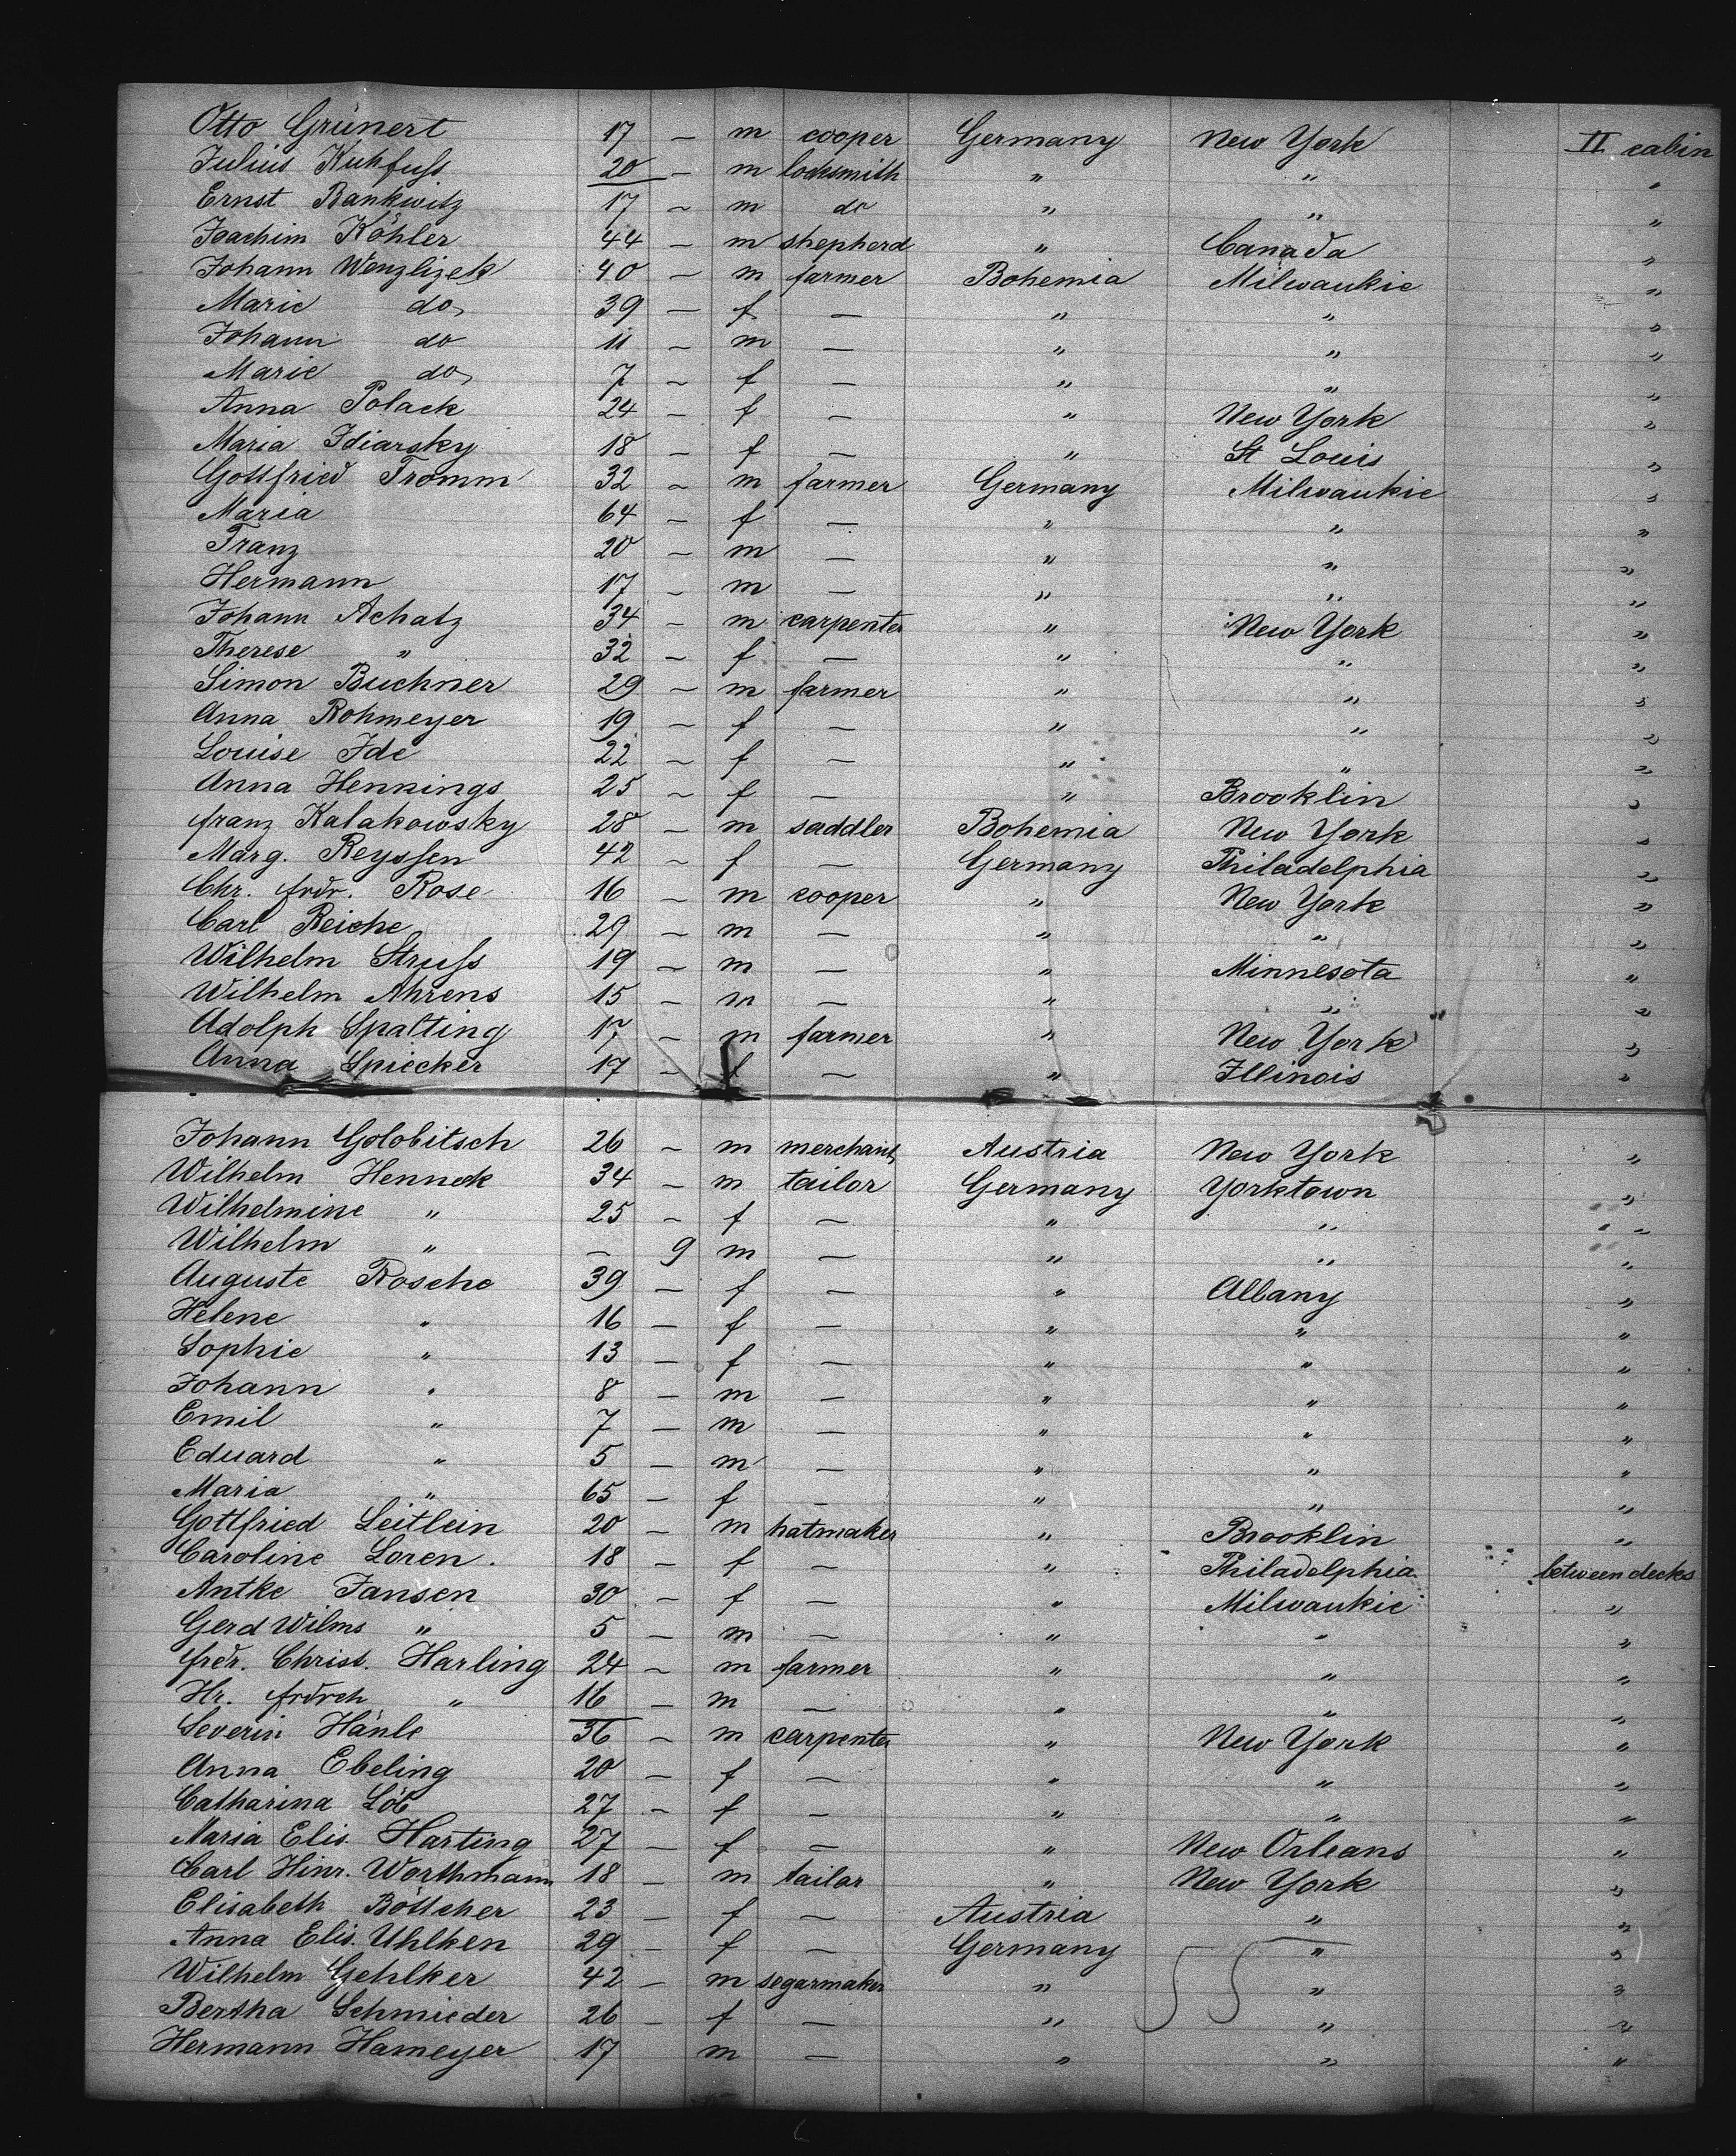 Otto Grünert 17 – m cooper Germany New York II cabin
Julius Kuhfuss 20 – m locksmith " " "
Ernst Bankwitz 17 – m do " " "
Joachim Köhler 44 – m shepherd " Canada "
Johann Wenzlizek 40 – m farmer Bohemia Milwaukie "
Marie do 39 – f – " " "
Johann do 11 – m – " " "
Marie do 7 – f – " " "
Anna Polack 24 – f – " New York "
Maria Idiarsky 18 – f – " St Louis "
Gottfried Fromm 32 – m farmer Germany Milwaukie "
Maria 64 – f – " " "
Franz 20 – m – " " "
Hermann 17 – m – " " "
Johann Achatz 34 – m carpenter " New York "
Therese " 32 – f – " " "
Simon Buchner 29 – m farmer " " "
Anna Rohmeyer 19 – f – " " "
Louise Ide 22 – f – " " "
Anna Hennings 25 – f – " Brooklin "
franz Kalakowsky 28 – m saddler Bohemia New York "
Marg. Reyssen 42 – f – Germany Philadelphia "
Chr. frdr. Rose 16 – m cooper " New York "
Carl Reiche 29 – m – " " "
Wilhelm Struss 19 – m – " Minnesota "
Wilhelm Ahrens 15 – m – " " "
Adolph Spalting 17 – m farmer " New York "
Anna Spiecker 17 – f – " Illinois "
Johann Golobitsch 26 – m merchant Austria New York "
Wilhelm Hennek 34 – m tailor Germany Yorktown "
Wilhelmine " 25 – f – " " "
Wilhelm " – 9 m – " " "
Auguste Rosche 39 – f – " Albany "
Helene " 16 – f – " " "
Sophie " 13 – f – " " "
Johann " 8 – m – " " "
Emil " 7 – m – " " "
Eduard " 5 – m – " " "
Maria " 65 – f – " " "
Gottfried Leitlein 20 – m hatmaker " Brooklin "
Caroline Loren. 18 – f – " Philadelphia between decks
Antke Jansen 30 – f – " Milwaukie "
Gerd Wilms " 5 – m – " " "
frdr. Christ. Harling 24 – m farmer " " "
Hr. frdrch " 16 – m – " " "
Severin Hänle 36 – m carpenter " New York "
Anna Ebeling 20 – f – " " "
Catharina Löb 27 – f – " " "
Maria Elis. Harting 27 – f – " New Orleans "
Carl Hinr. Worthmann 18 – m tailor " New York "
Elisabeth Böttcher 23 – f – Austria " "
Anna Elis. Uhlken 29 – f – Germany " "
Wilhelm Gehlker 42 – m segarmaker " " "
Bertha Schmieder 26 – f – " " "
Hermann Hameyer 17 m – " " "